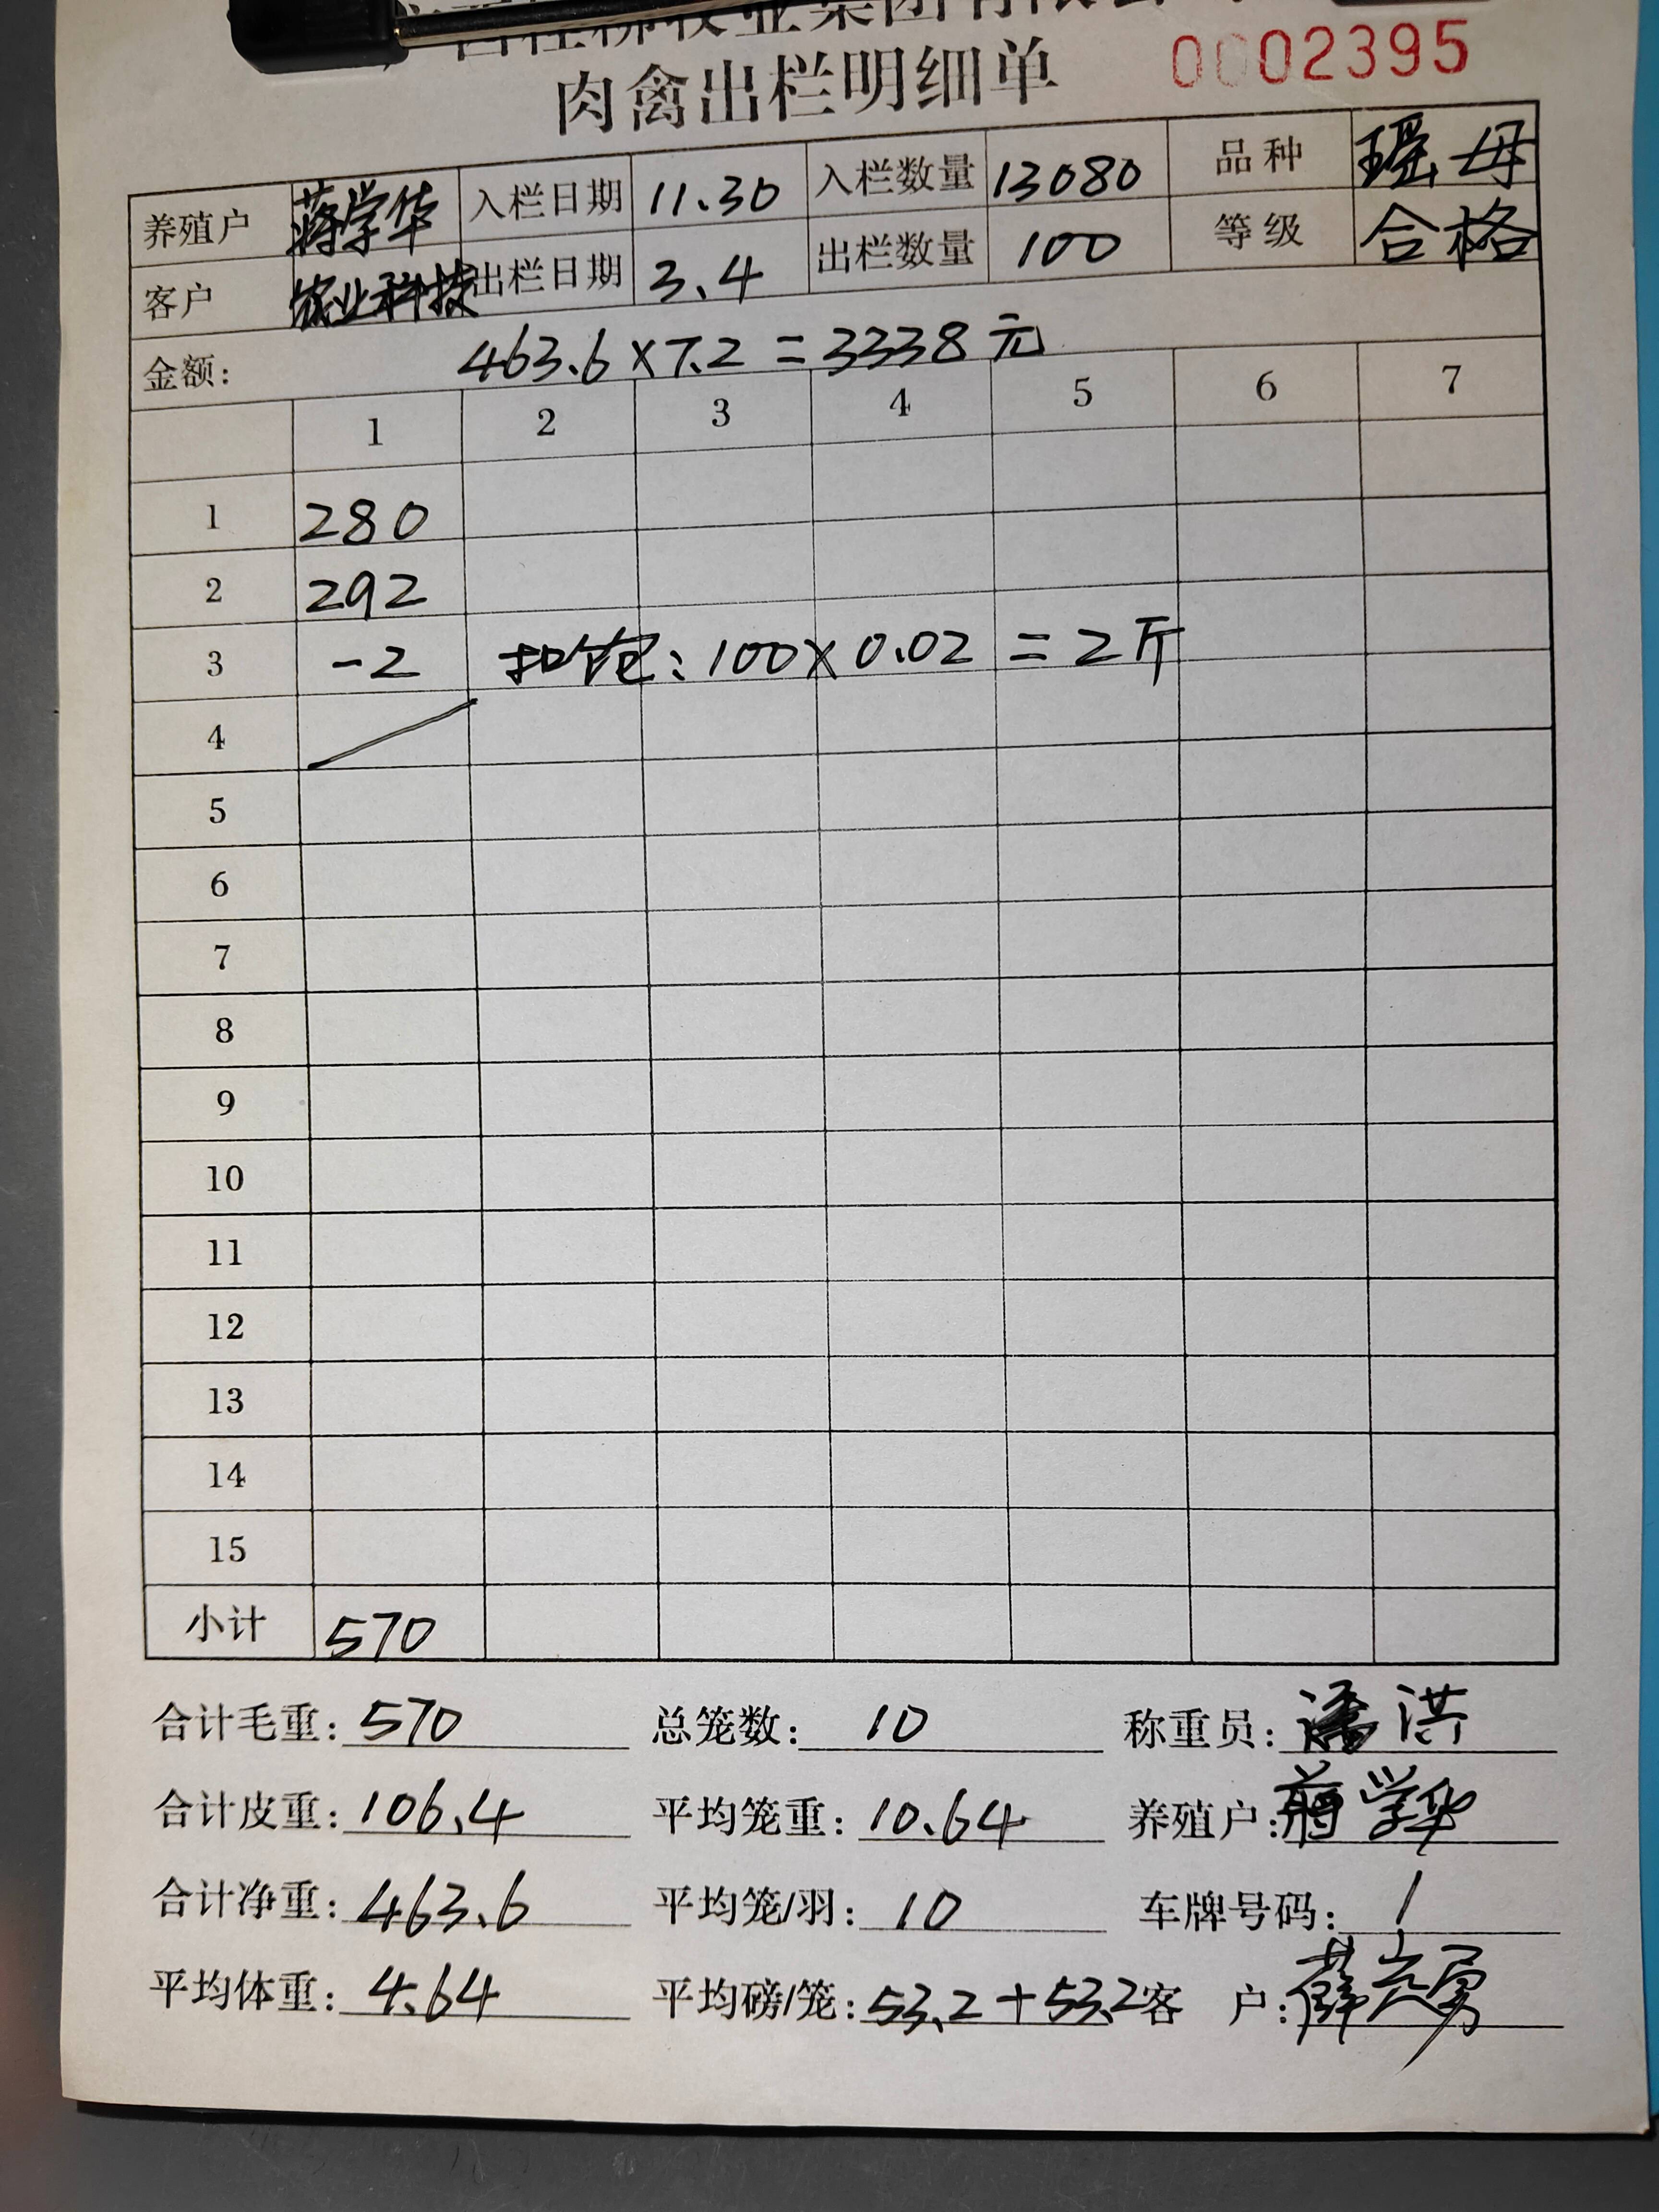 牧业集团有限公
肉禽出栏明细单 0002395
养殖户 蒋学华 入栏日期 11.30 入栏数量 13080 品种 瑶母
客户 农业科技 出栏日期 3.4 出栏数量 100 等级 合格
金额: 463.6×7.2=3338元
1 2 3 4 5 6 7
1 280
2 292
3 -2 扣饱:100×0.02=2斤
4
5
6
7
8
9
10
11
12
13
14
15
小计 570
合计毛重:570 总笼数:10 称重员:潘洪
合计皮重:106.4 平均笼重:10.64 养殖户:蒋学华
合计净重:463.6 平均笼/羽:10 车牌号码:/
平均体重:4.64 平均磅/笼:53.2+53.2 客户:薛